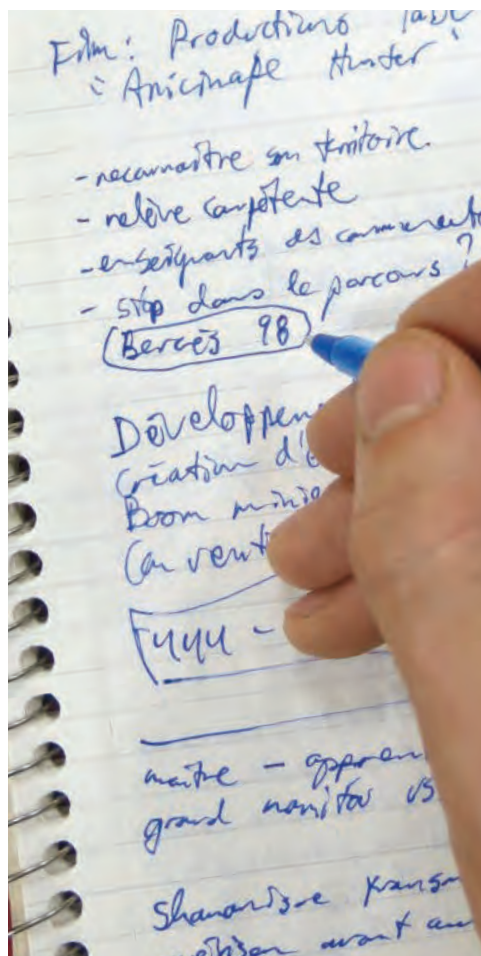 Film: Productions
"Anicinape Hunter"
- reconnaître son territoire.
- relève compétente
- enseignants
- stop dans le parcours ?
Bercés 98
Développem
Création d'
Boom mini
Convent
444 -
maître - appren
grand manitou vs.
Shamanisme transm
avant